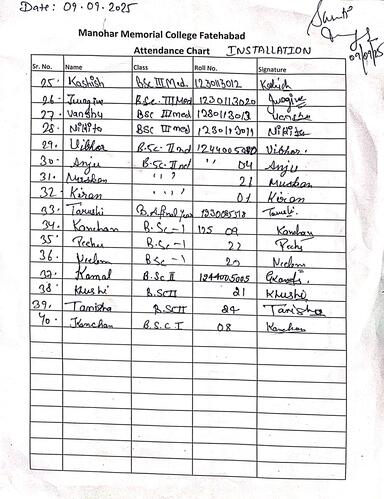 Date: 09.09.2025
09/09/25
Manohar Memorial College Fatehabad
Attendance Chart INSTALLATION
Sr. No. Name Class Roll No. Signature
25. Kashish BSc III Med. 1230113012 Kashish
26. B.Sc. III Med 1230113020
27. Vanshu BSC III med 1230113013 Vanshu
28. Nikita BSC III med 1230113011 Nikita
29. Vibhor B.Sc. II nd Vibhor
30. Anju B.Sc. II nd '' 04 Anju
31. Muskan '' '' 21 Muskan
32. Kiran '' '' 01 Kiran
33. Tarushi B.A final year Tarushi
34. Kanchan B.Sc-1 125 09 Kanchan
35. B.Sc-1 22
36. Neelam BSc-1 20 Neelam
37. Kamal B.Sc II 1244005005
38. Khushi B.SCII 21 Khushi
39. Tanisha B.SCII 24 Tanisha
40. Kanchan B.S.C I 08 Kanchan